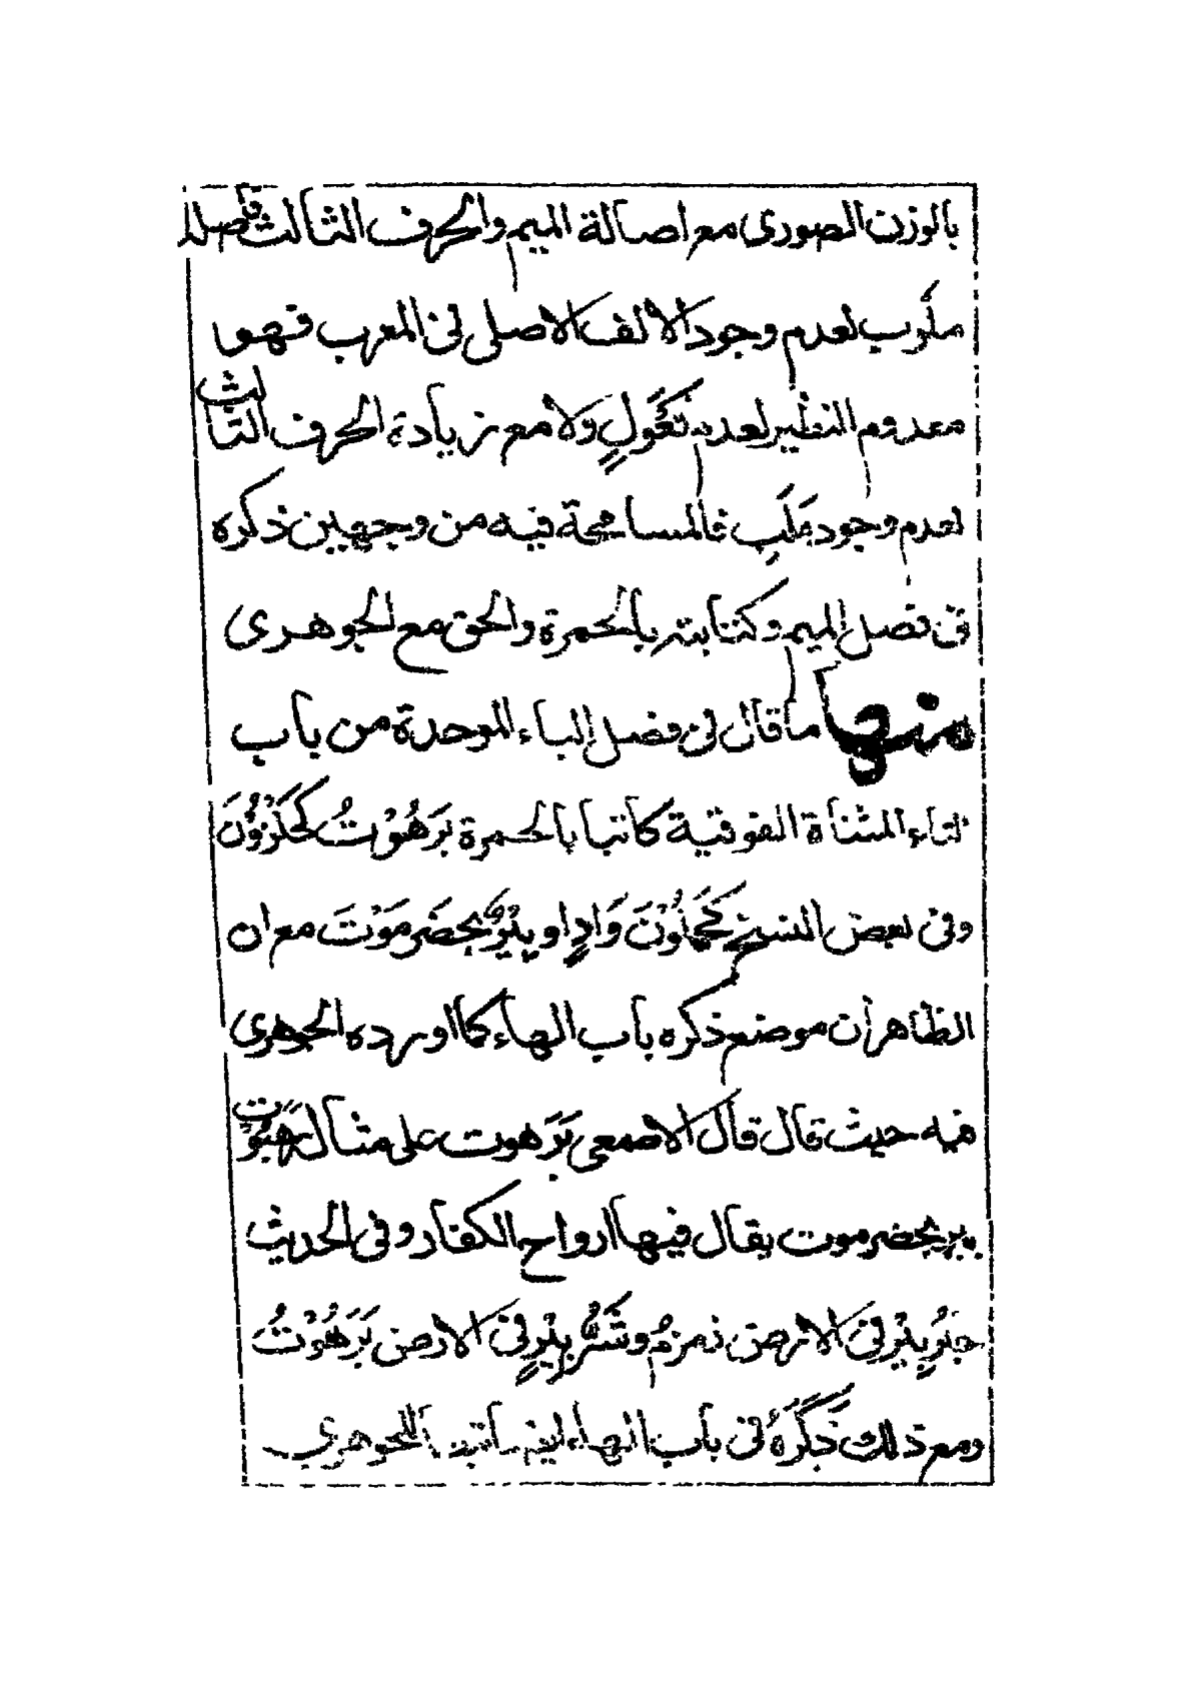 بالوزن الصورى مع اصالة الميم والحرف الثالث فاصله
ملوب لعدم وجود الالف الاصلى فى المعرب فهو
معدوم النظير لعدم تَعَوُلٍ ولا مع زيادة الحرف الثالث
لعدم وجود مَلَبٍ فالمسامحة فيه من وجهين ذكره
فى فصل الميم وكتابته بالحمرة والحق مع الجوهرى
منها ما قال فى فصل الباء الموحدة من باب
التاء المثناة الفوقية كاتبا بالحمرة بَرَهُوْتُ كَحَلَزُوْنَ
وفى بعض النسخ وَادٍ او بِئْرٌ بحَضَرمَوْتَ مع ان
الظاهر ان موضع ذكره باب الهاء كما اورده الجوهرى
فيه حيث قال قال الاصمعى بَرَهوت على مثال رَهَبُوت
بير بحضرموت يقال فيها ارواح الكفار وفى الحديث
خَيْرُ بِئْرٍ فى الارض زمزمُ وشَرُّ بِئْرٍ فى الارض بَرَهُوْتُ
ومع ذلك ذَكَرَهُ فى باب الهاء ايضا للجوهرى